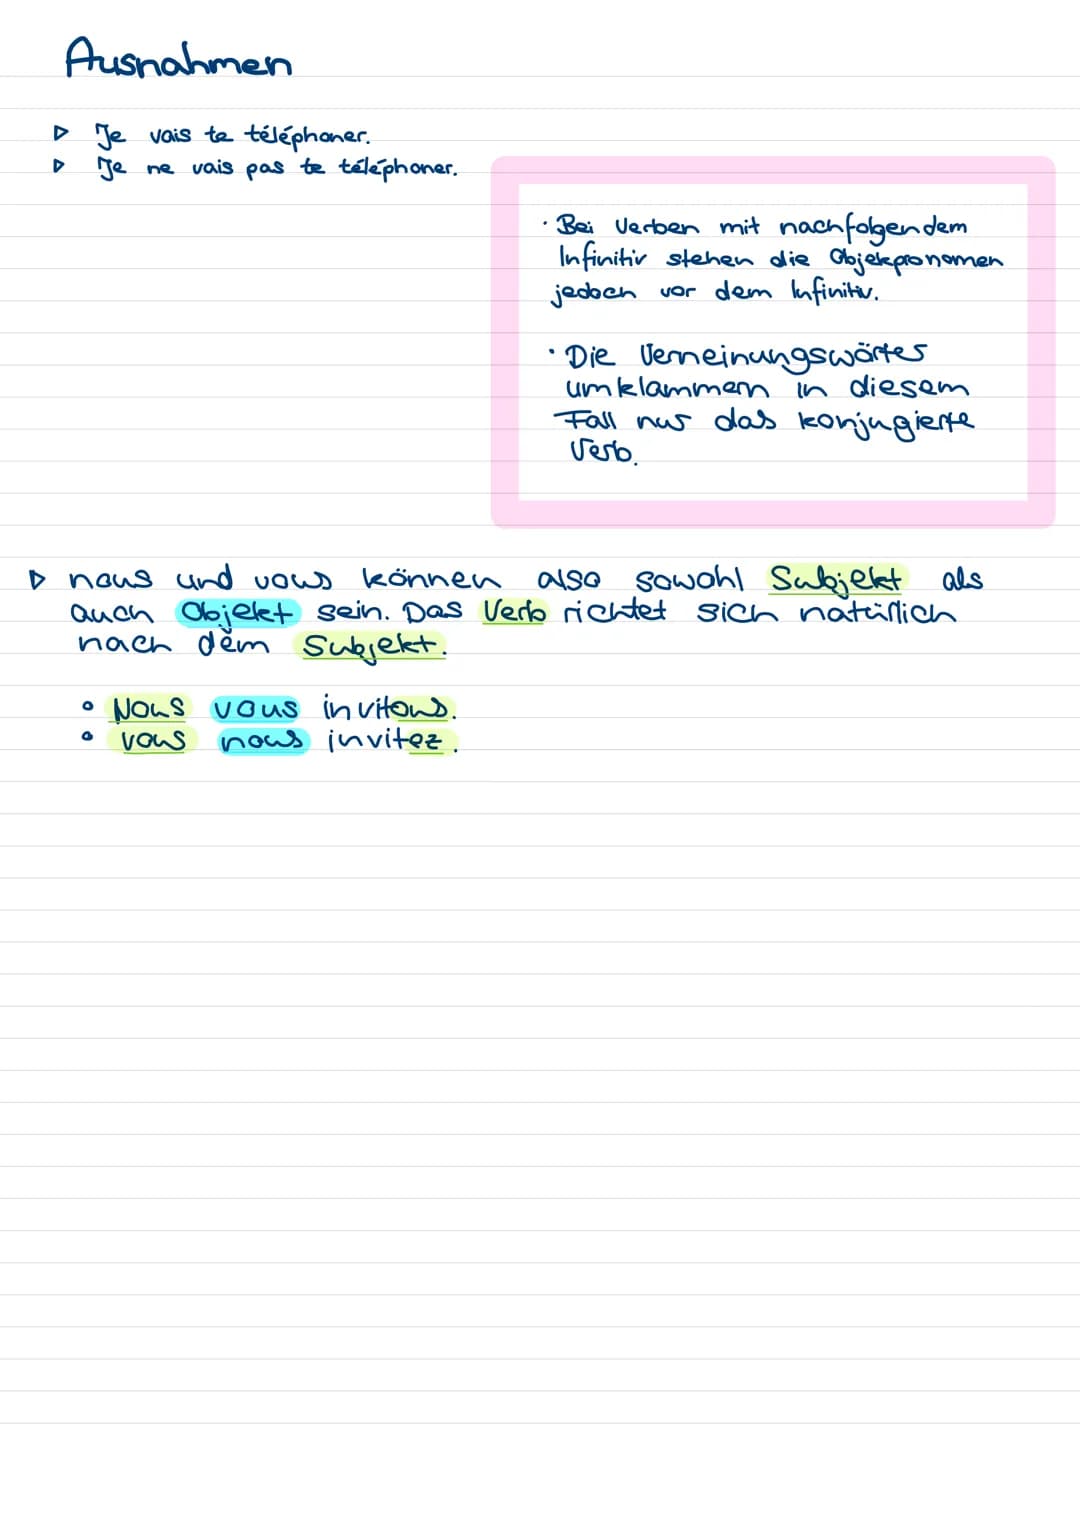 Ausnahmen
▷ Je vais te téléphoner.
▷ Je ne vais pas te téléphoner.
· Bei Verben mit nachfolgendem
Infinitiv stehen die Objekpronomen
jedoch vor dem Infinitiv.
· Die Verneinungswörter
umklammern in diesem
Fall nur das konjugierte
Verb.
▷ nous und vous können also sowohl Subjekt als
auch Objekt sein. Das Verb richtet sich natürlich
nach dem Subjekt.
• Nous vous invitons.
• vous nous invitez.